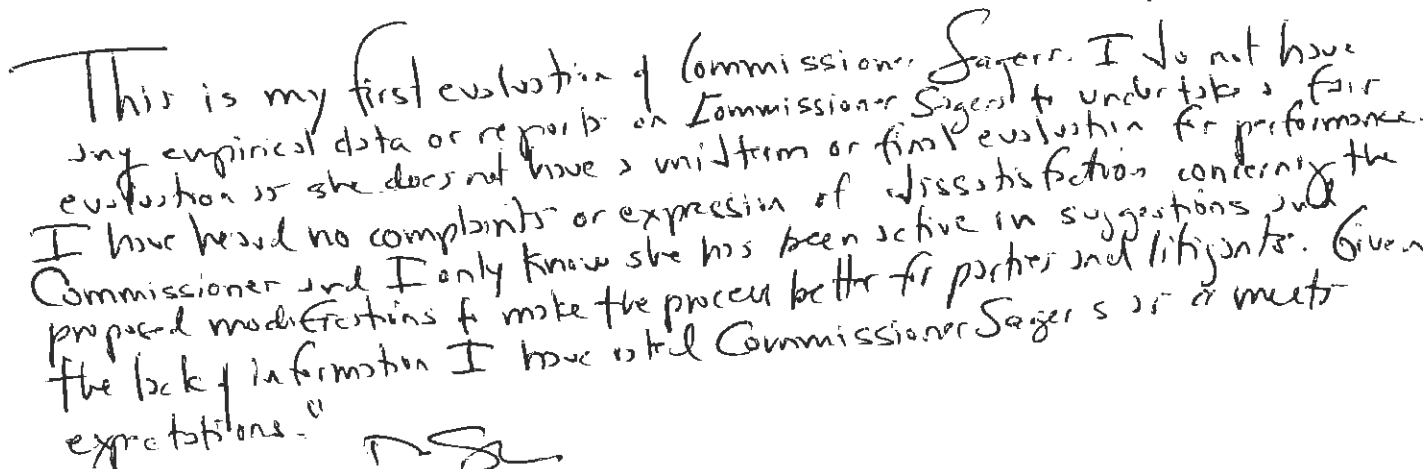 This is my first evaluation of Commissioner Sagers. I do not have
any empirical data or reports on Commissioner Sagers to undertake a fair
evaluation as she does not have a midterm or final evaluation for performance.
I have heard no complaints or expression of dissatisfaction concerning the
Commissioner and I only know she has been active in suggestions and
proposed modifications to make the process better for parties and litigants. Given
the lack of information I have rated Commissioner Sagers as a meets
expectations."